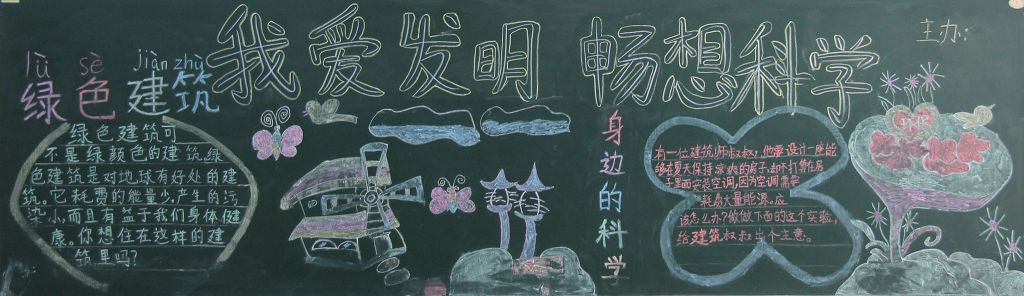 我爱发明 畅想科学
主办:
lǜ sè jiàn zhù
绿色建筑
绿色建筑可
不是绿颜色的建筑,绿
色建筑是对地球有好处的建
筑。它耗费的能量少,产生的污
染小,而且有益于我们身体健
康。你想住在这样的建
筑里吗?
身边的科学
有一位建筑师叔叔,他要设计一座能
够在夏天保持凉爽的房子,却不打算在房
子里面安装空调,因为空调需要
耗费大量能源。应
该怎么办?做做下面的这个实验,
给建筑叔叔出个主意。